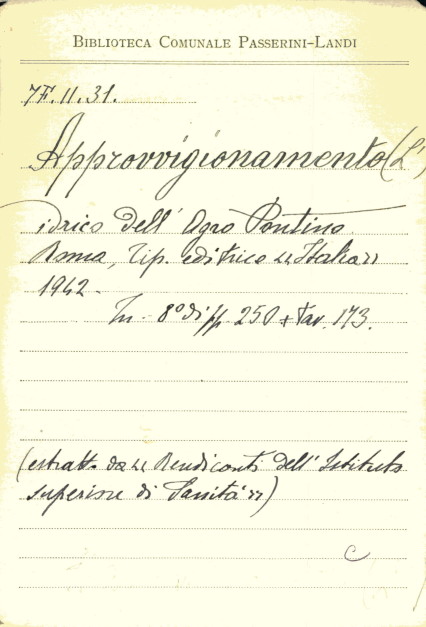 BIBLIOTECA COMUNALE PASSERINI-LANDI
7F. 11. 31.
Approvvigionamento (L')
idrico dell' Agro Pontino.
Roma, Tip. editrice "Italia"
1942-
In-8° di pp. 250 + tav. 173.
(estratt. da "Rendiconti dell' Istituto
superiore di Sanità")
C